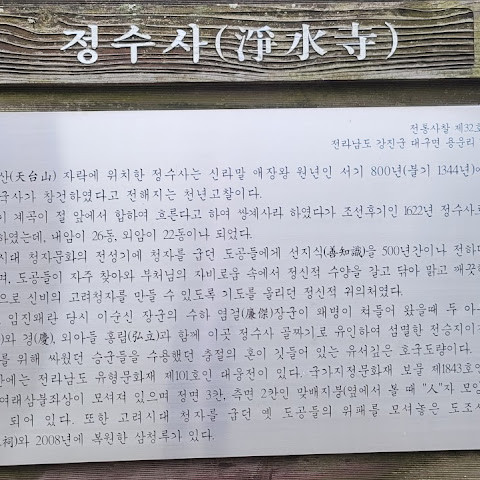 정수사(淨水寺)
전통사찰 제32호
전라남도 강진군 대구면 용운리
산(天台山) 자락에 위치한 정수사는 신라말 애장왕 원년인 서기 800년(불기 1344년)에
국사가 창건하였다고 전해지는 천년고찰이다.
이 계곡이 절 앞에서 합하여 흐른다고 하여 쌍계사라 하였다가 조선후기인 1622년 정수사로
하였는데, 내암이 26동, 외암이 22동이나 되었다.
시대 청자문화의 전성기에 청자를 굽던 도공들에게 선지식(善知識)을 500년간이나 전하다
며, 도공들이 자주 찾아와 부처님의 자비로움 속에서 정신적 수양을 갈고 닦아 맑고 깨끗한
으로 신비의 고려청자를 만들 수 있도록 기도를 올리던 정신적 위의처였다.
임진왜란 당시 이순신 장군의 수하 염걸(廉傑)장군이 왜병이 쳐들어 왔을때 두 아
와 경(慶), 외아들 홍립(弘立)과 함께 이곳 정수사 골짜기로 유인하여 섬멸한 전승지이
를 위해 싸웠던 승군들을 수용했던 충절의 혼이 깃들어 있는 유서깊은 호국도량이다.
에는 전라남도 유형문화재 제101호인 대웅전이 있다. 국가지정문화재 보물 제1843호인
여래삼불좌상이 모셔져 있으며 정면 3칸, 측면 2칸인 맞배지붕(옆에서 볼 때 "人"자 모양
되어 있다. 또한 고려시대 청자를 굽던 옛 도공들의 위패를 모셔놓은 도조사
祠)와 2008년에 복원한 삼청루가 있다.